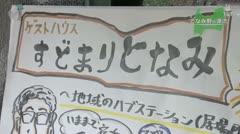 となみ野の家
ゲストハウス
すどまりとなみ
へ地域のハブステーション(居場
いままで